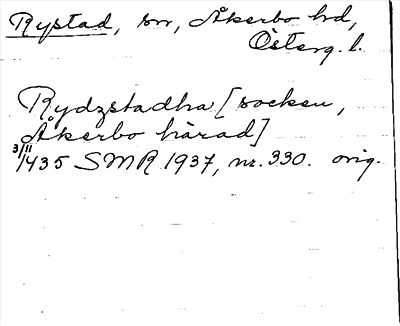 Rystad, sn, Åkerbo hd,
Österg. l.
Rydzstadha [socken,
Åkerbo härad]
3/11 1435 SMR 1937, nr. 330. orig.